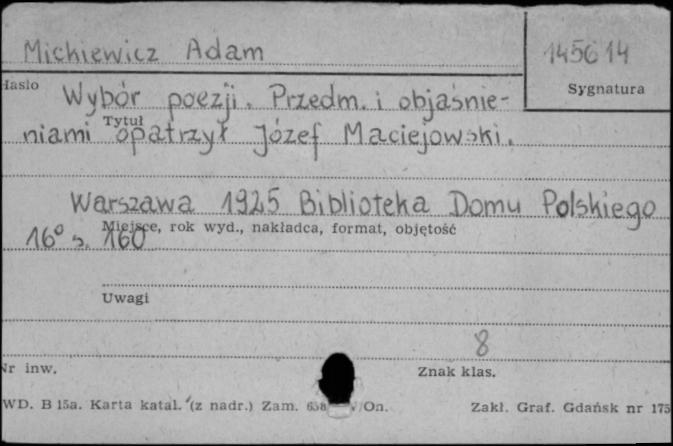 Mickiewicz Adam
145614
Hasło
Sygnatura
Wybór poezji. Przedm. i objaśnie-
Tytuł
niami opatrzył Józef Maciejowski.
Warszawa 1925 Biblioteka Domu Polskiego
Miejsce, rok wyd., nakładca, format, objętość
16° s. 160
Uwagi
8
Nr inw.
Znak klas.
WD. B 15a. Karta katal. (z nadr.) Zam. On.
Zakł. Graf. Gdańsk nr 175